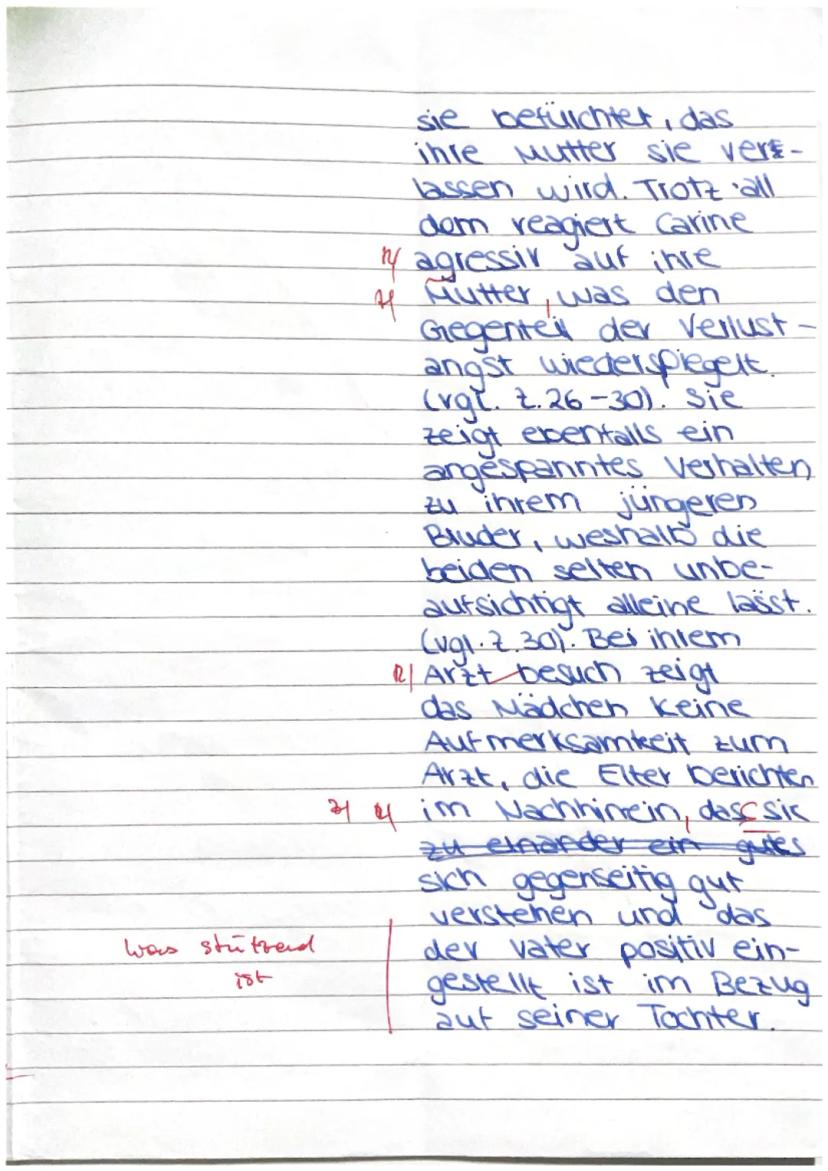 sie befürchtet, das
ihre Mutter sie ver-
lassen wird. Trotz all
dem reagiert Carine
R/ agressiv auf ihre
Z/ Mutter, was den
Gegenteil der Verlust-
angst wiederspiegelt.
(vgl. Z.26-30). Sie
zeigt ebenfalls ein
angespanntes Verhalten
zu ihrem jüngeren
Bruder, weshalb die
beiden selten unbe-
aufsichtigt alleine lässt.
(vgl. Z.30). Bei ihrem
R/ Arzt besuch zeigt
das Mädchen keine
Aufmerksamkeit zum
Arzt, die Elter berichten
Z/ R/ im Nachhinein, dass sie
zu einander ein gutes
sich gegenseitig gut
verstehen und das
was stützend der Vater positiv ein-
ist gestellt ist im Bezug
auf seiner Tochter.